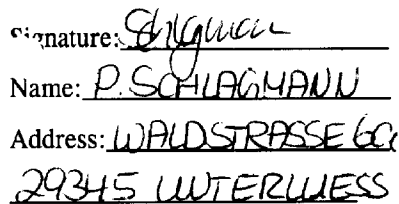 Signature:
Name: P. SCHLAGMANN
Address: WALDSTRASSE 6a
29345 UNTERLUESS